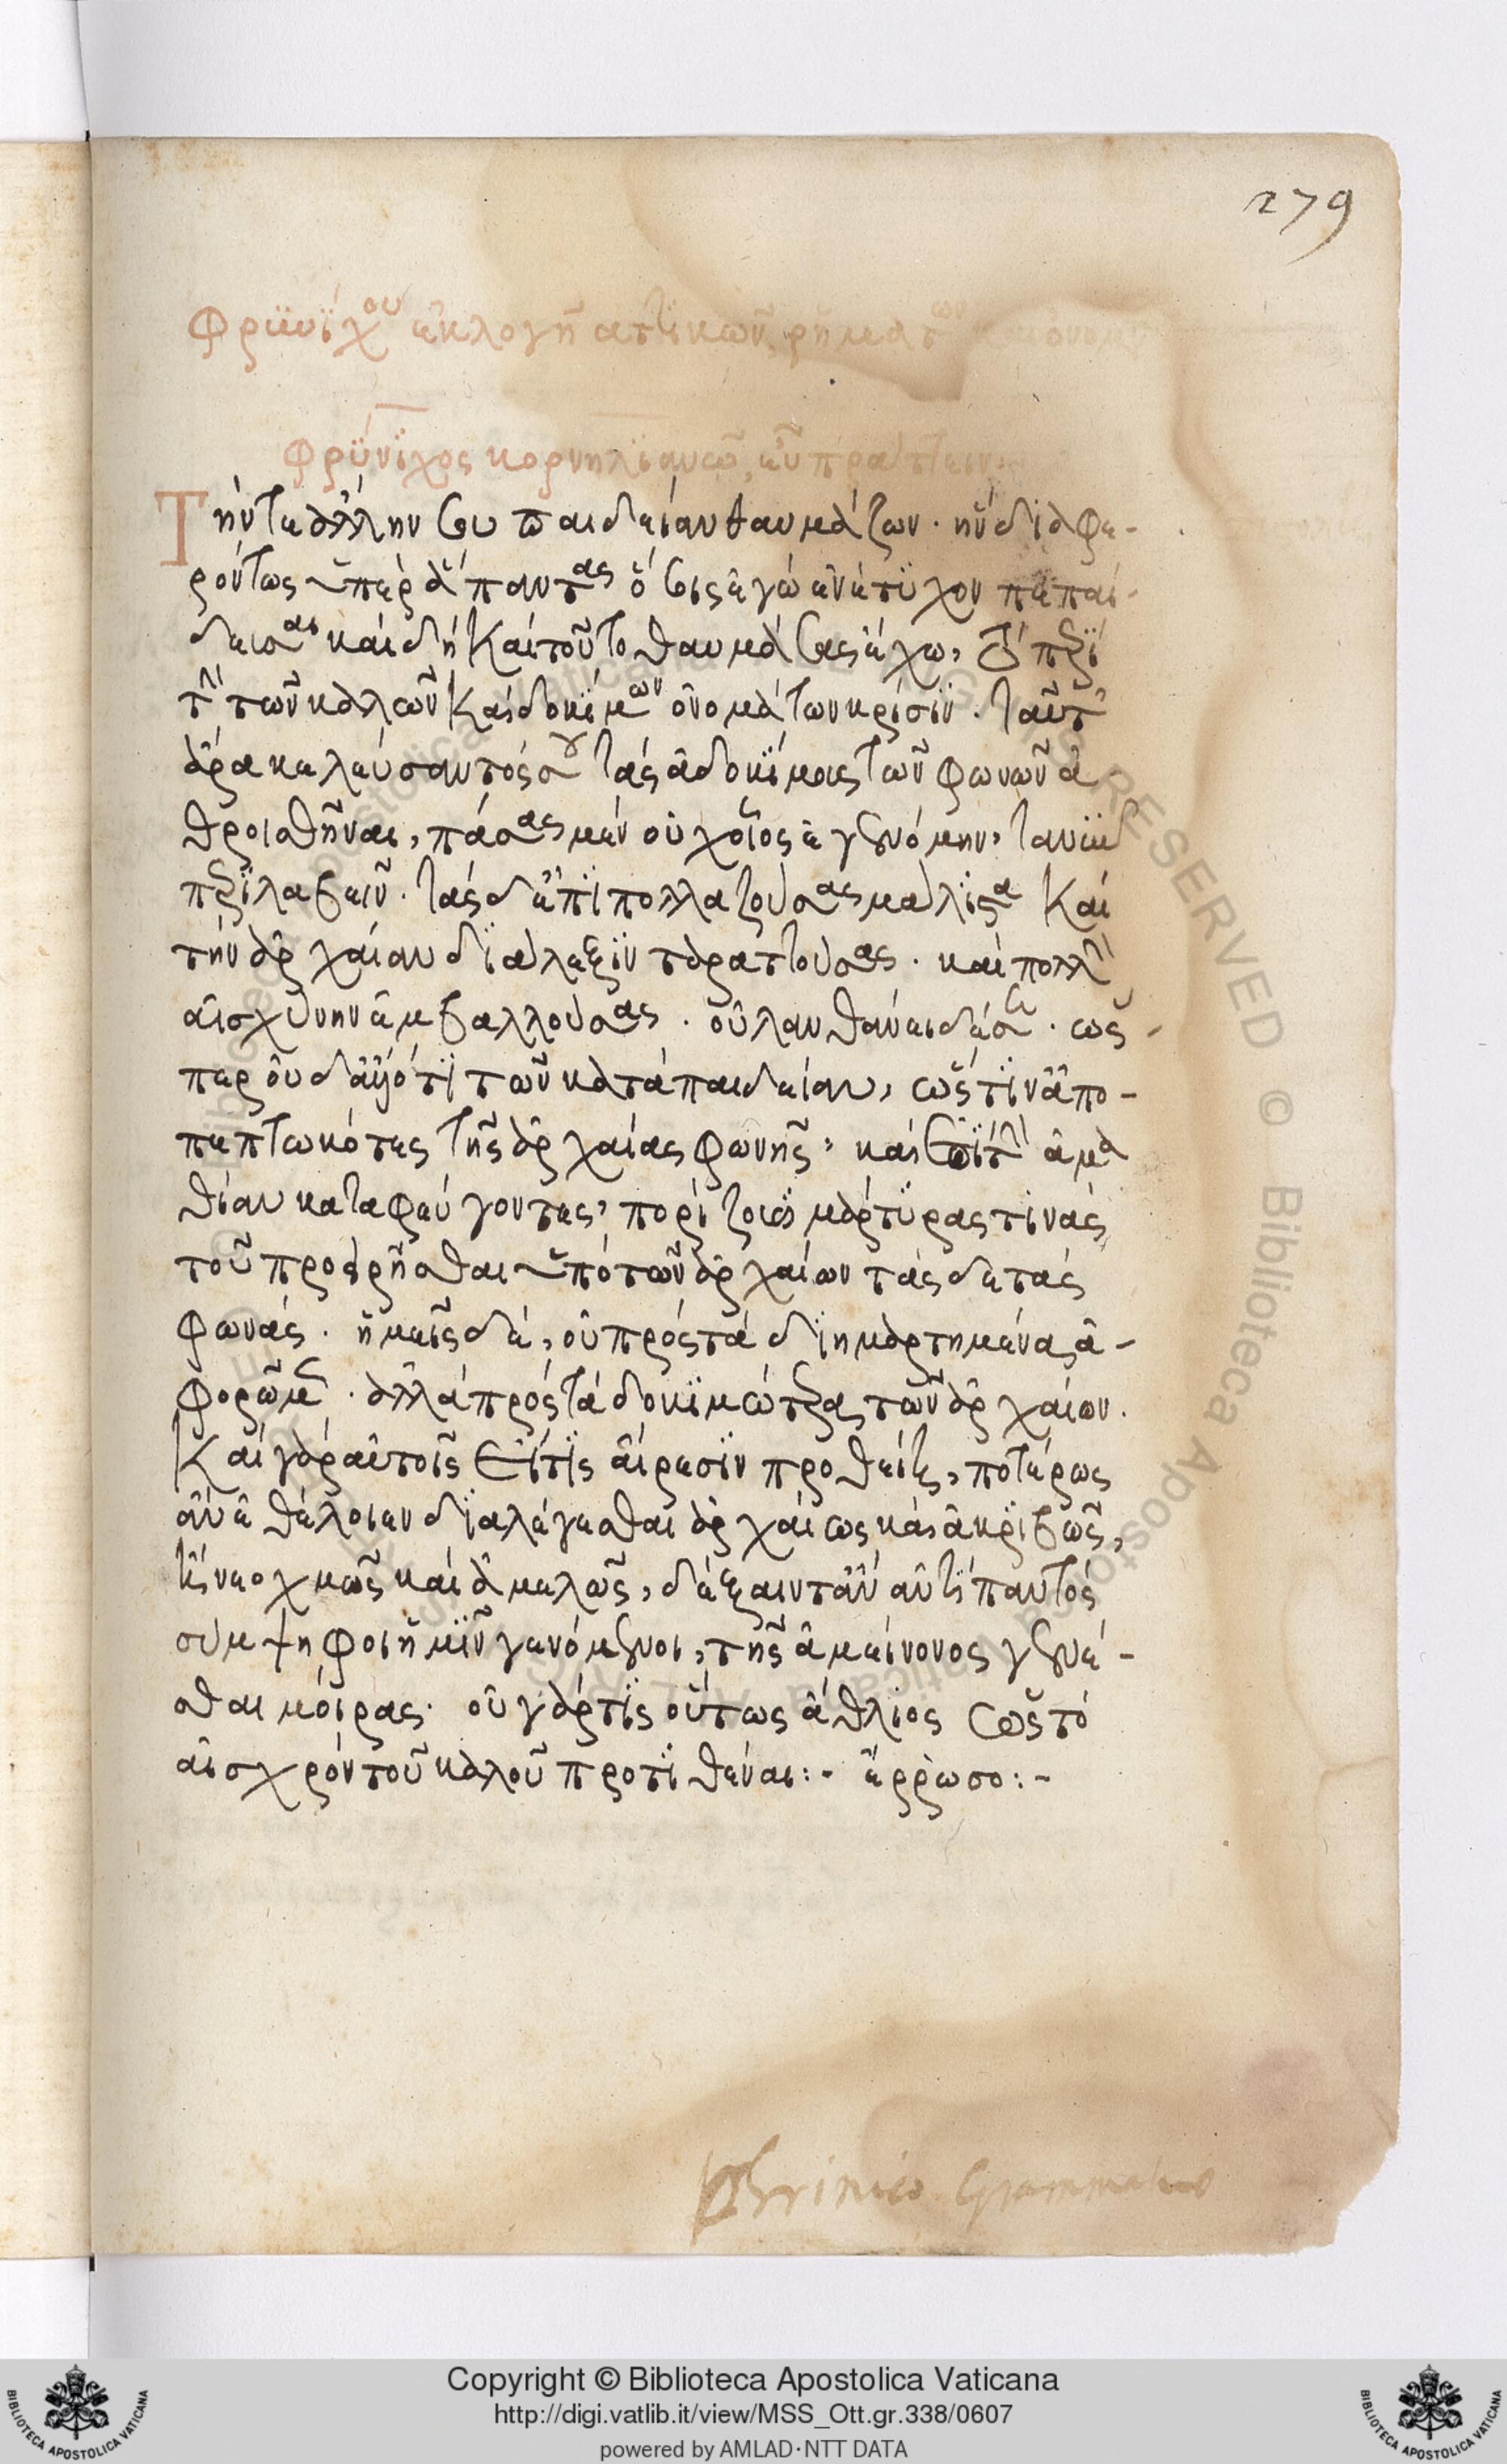 279
Φρυνίχου ἐκλογὴ ἀττικῶν ῥημάτων καὶ ὀνομ
Φρύνιχος κορνηλιανῶ εὖ πράττειν
Τήν τε ἄλλην σου παιδείαν θαυμάζων· ἣν διαφε-
ρόντως ὑπὲρ ἅπαντας ὅσοις ἐγὼ ἐνέτυχον πεπαί-
δευσαι καὶ δὴ καὶ τοῦτο θαυμάσας ἔχω, τὸ περὶ
τὴν τῶν καλῶν καὶ δοκίμων ὀνομάτων κρίσιν· ταῦτ'
ἄρα κελεύσαντός σου τὰς ἀδοκίμους τῶν φωνῶν ἀ
θροισθῆναι, πάσας μὲν οὐχ οἷος ἐγενόμην, τανῦν
περιλαβεῖν· τὰς δ' ἐπιπολλαζούσας μάλιστα καὶ
τὴν ἀρχαίαν διάλεξιν ταραττούσας· καὶ πολλὴν
αἰσχύνην ἐμβαλλούσας· οὐ λανθάνει δέ σε· ὥς-
περ οὐδ' ἄλλό τι τῶν κατὰ παιδείαν, ὥς τινὲς ἀπο-
πεπτωκότες τῆς ἀρχαίας φωνῆς, καὶ ἐπὶ τὴν ἀμα
θίαν καταφεύγοντες, πορίζουσι μάρτυρας τινὰς
τοῦ προειρῆσθαι ὑπὸ τῶν ἀρχαίων τάς δε τὰς
φωνάς· ἡμεῖς δὲ, οὐ πρὸς τὰ διημαρτημένα ἀ-
φορῶμεν· ἀλλὰ πρὸς τὰ δοκιμώτερα τῶν ἀρχαίων·
Καὶ γὰρ αὐτοῖς εἴ τις αἵρεσιν προθείη, ποτέρως
ἂν ἐθέλοιεν διαλέγεσθαι ἀρχαίως καὶ ἀκριβῶς,
ἢ νεοχμῶς καὶ ἀμελῶς, δέξαιντ' ἂν ἀντὶ παντὸς
σύμψηφοι ἡμῖν γενόμενοι, τῆς ἀμείνονος γενέ-
σθαι μοίρας· οὐ γάρ τις οὕτως ἄθλιος ὡς τὸ
αἰσχρὸν τοῦ καλοῦ προτιθέναι:- ἔρρωσο:-
Phrinico Grammatico
Copyright © Biblioteca Apostolica Vaticana
http://digi.vatlib.it/view/MSS_Ott.gr.338/0607
powered by AMLAD·NTT DATA